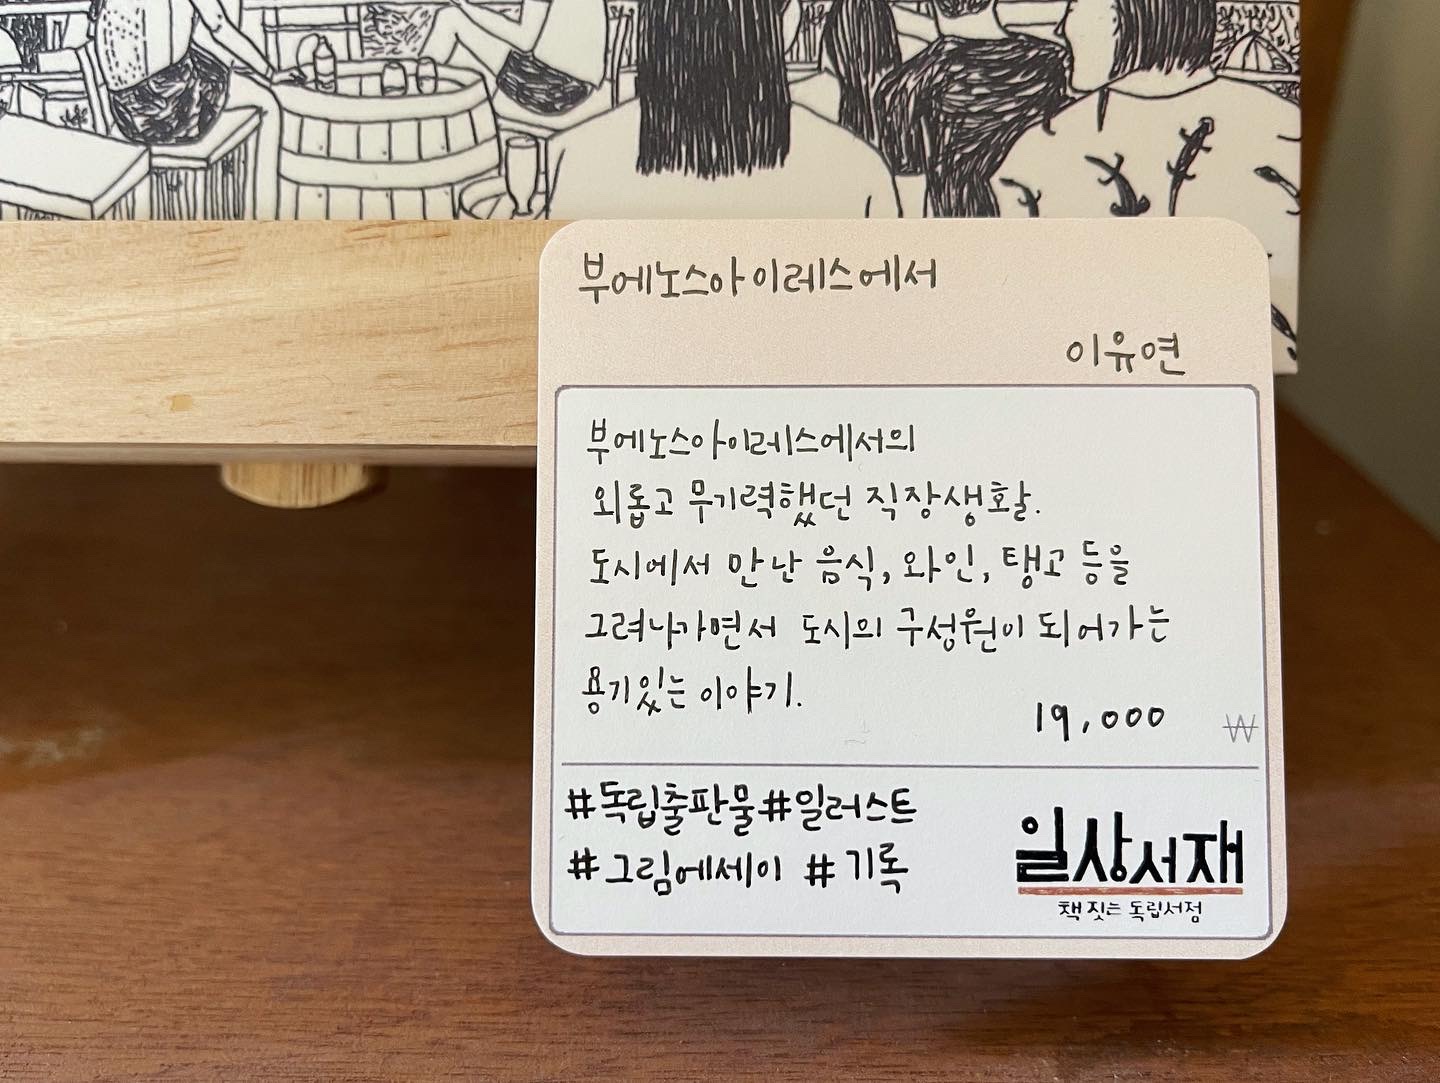 부에노스아이레스에서
이유연
부에노스아이레스에서의
외롭고 무기력했던 직장생활.
도시에서 만난 음식, 와인, 탱고 등을
그려나가면서 도시의 구성원이 되어가는
용기있는 이야기.
19,000 ₩
#독립출판물 #일러스트
#그림에세이 #기록
일상서재
책 짓는 독립서점